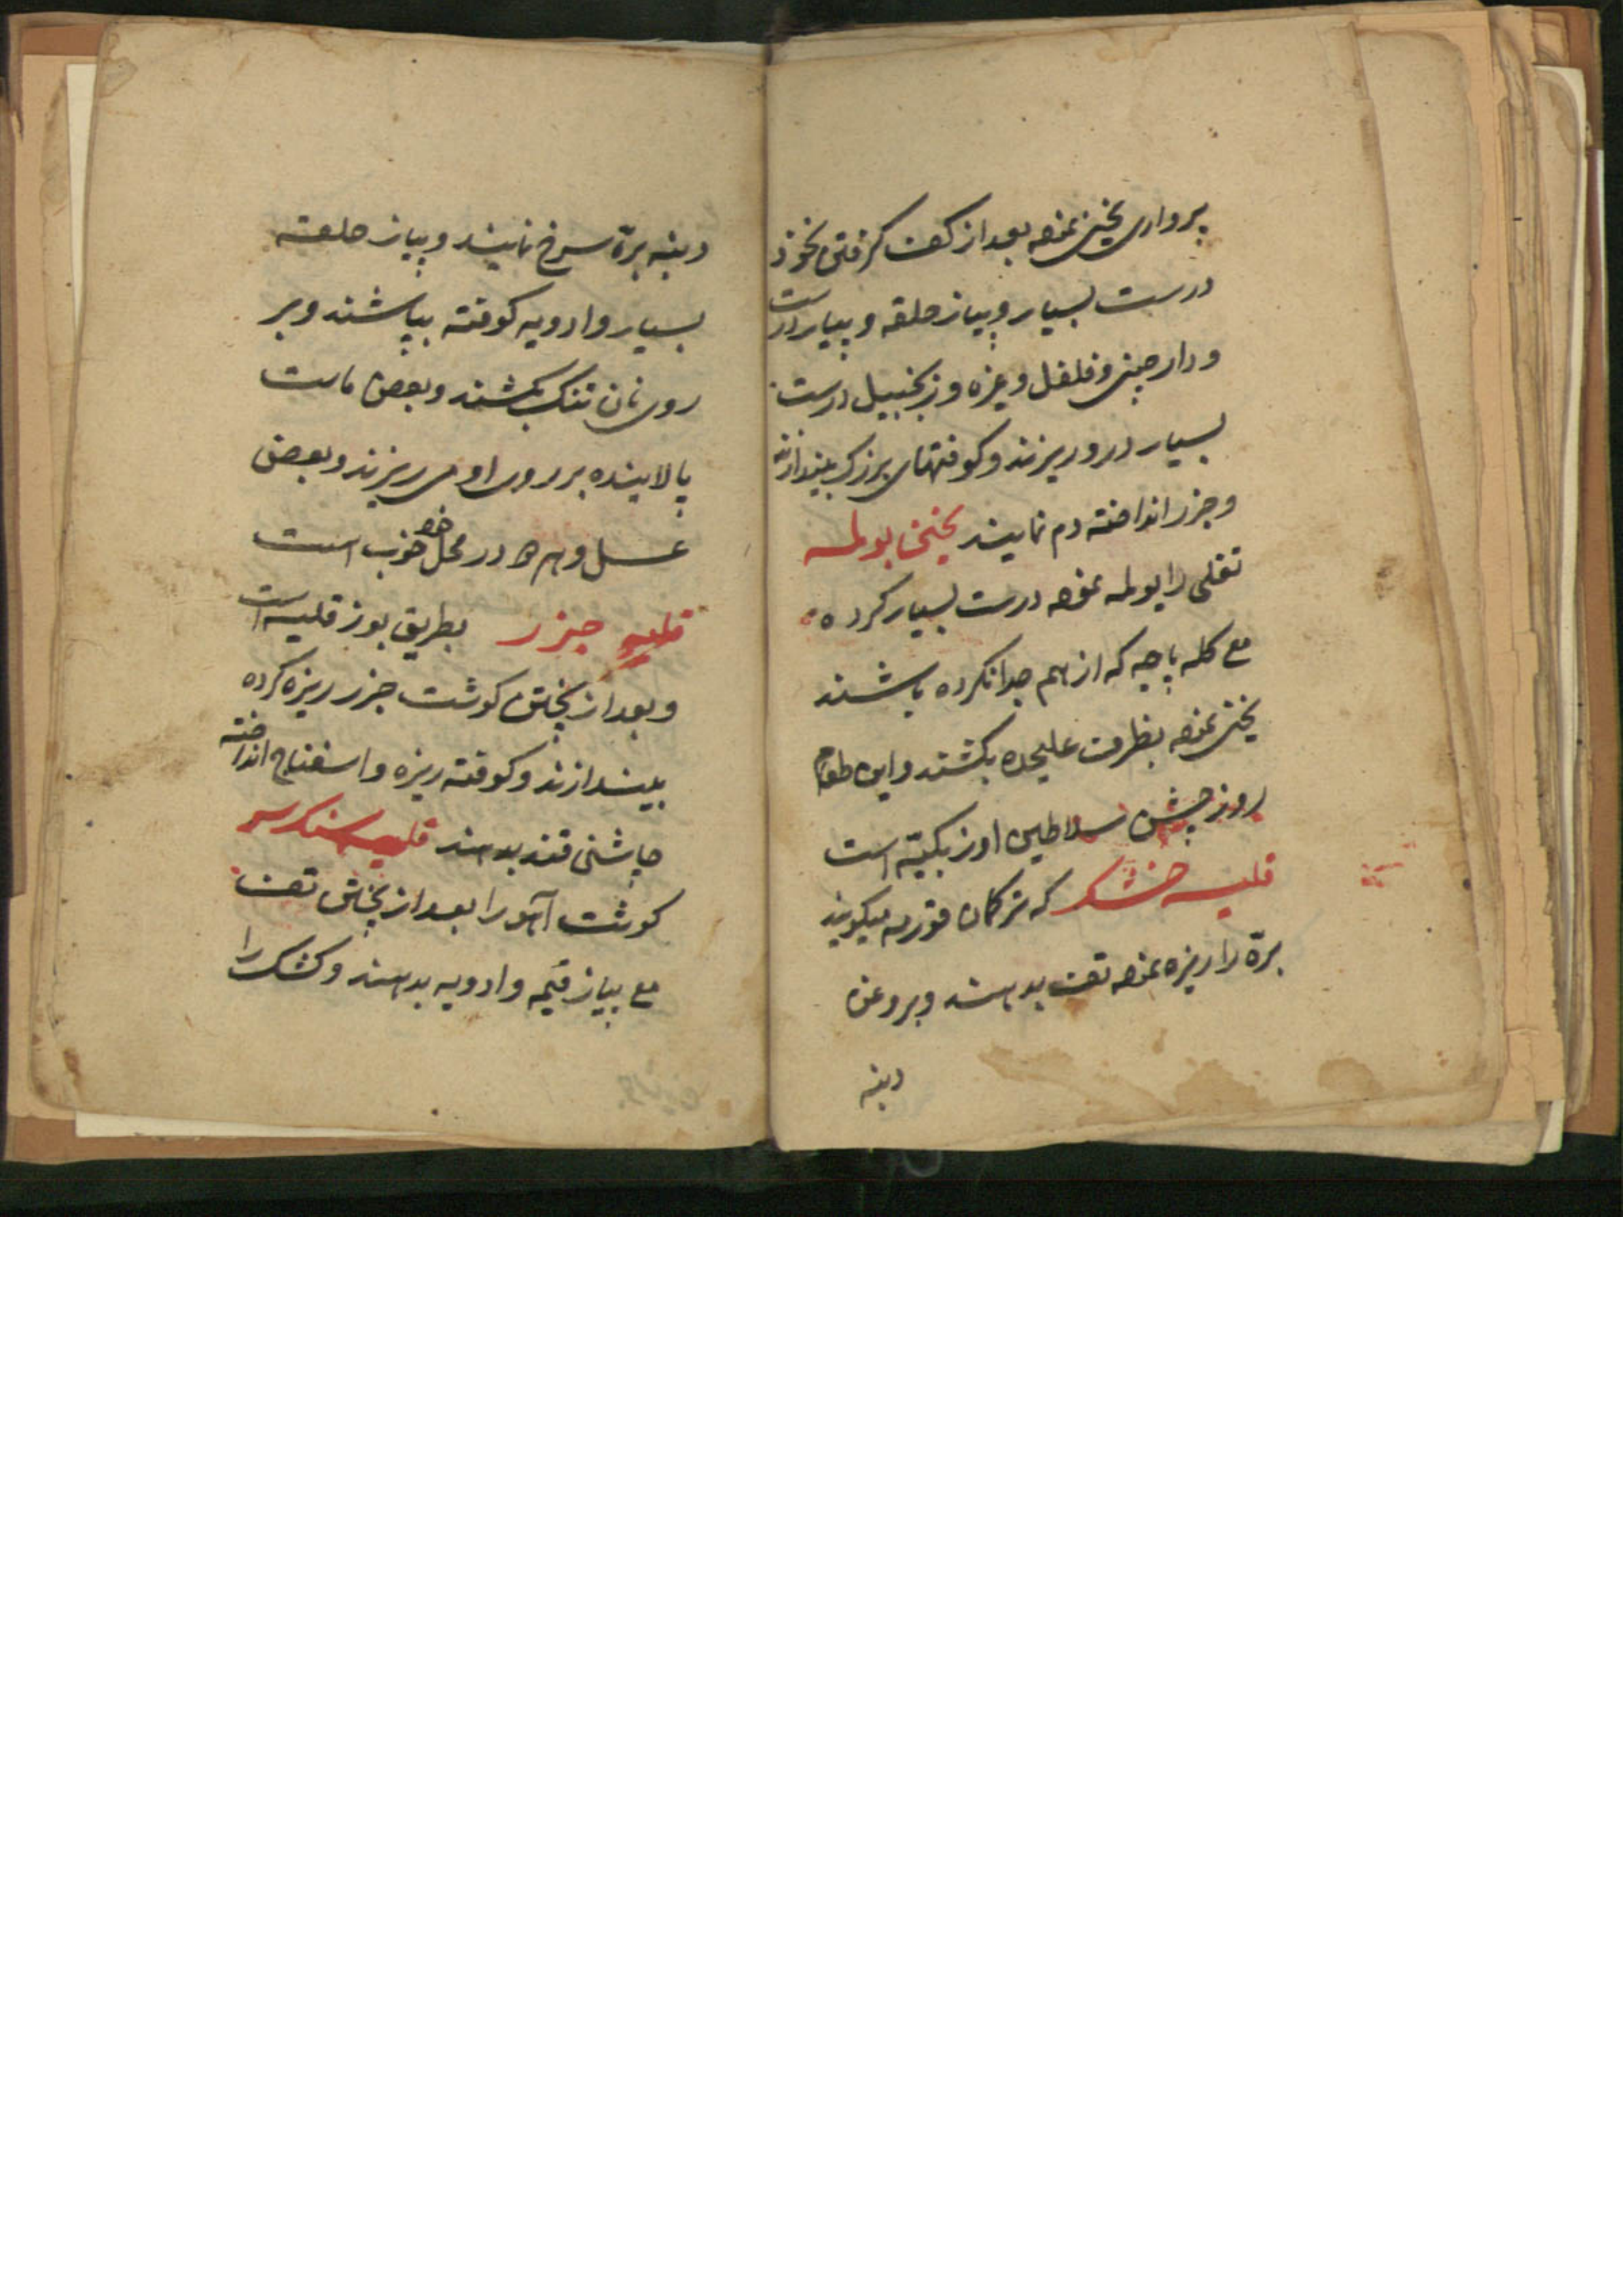 پرواری یخنی نموده بعد از کف گرفتن نخود
درست بسیار و پیاز حلقه و پیاز درست
و دارچینی و فلفل و غیره و زنجبیل درست
بسیار درو ریزند و کوفتهای بزرک بیندازند
و جزر انداخته دم نمایند یخنی بولمه
تقلی را بولمه نموده درست بسیار کرده
مع کله پاچه که از هم جدا نکرده باشند
یخنی نموده بظرف علیحده بکشند و این طعام
روز جشن سلاطین اوزبکیه است
قلیه خشک که ترکمان قورمه میکویند
بره را ریزه نموده تفت بدهند و بروغن
دنبه
دنبه بره سرخ نمایند و پیاز حلقه
بسیار و ادویه کوفته بپاشند و بر
روی نان تنک بکشند و بعضی ماست
پالاینده بر روی او می ریزند و بعضی
عسل و هر در محل خود خوب است
قلیه جزر بطریق بوز قلیه است
و بعد از پختن کوشت جزر ریزه کرده
بیندازند و کوفته ریزه و اسفناج انداخته
چاشنی قند بدهند قلیه
کوشت آهو را بعد از پختن تفت
مع پیاز قیمه و ادویه بدهند و کشک را